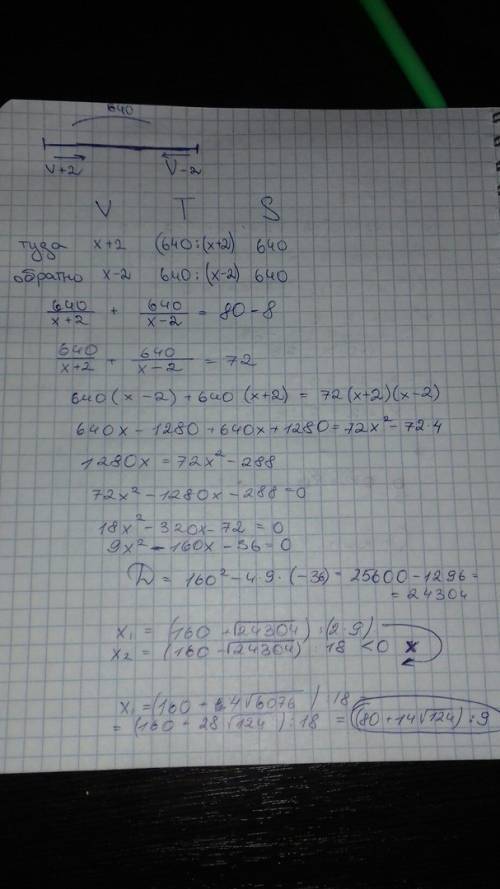 640
V+2 V-2
V T S
туда x+2 (640:(x+2) 640
обратно x-2 640:(x-2) 640
640/(x+2) + 640/(x-2) = 80-8
640/(x+2) + 640/(x-2) = 72
640(x-2)+640(x+2) = 72(x+2)(x-2)
640x-1280+640x+1280=72x²-72·4
1280x=72x²-288
72x²-1280x-288=0
18x²-320x-72=0
9x²-160x-36=0
D=160²-4·9·(-36)=25600-1296=
=24304
x₁=(160+√24304):(2·9)
x₂=(160-√24304):18<0 x
x₁=(160+√4√6076):18=
=(160+28√124):18=(80+14√124):9